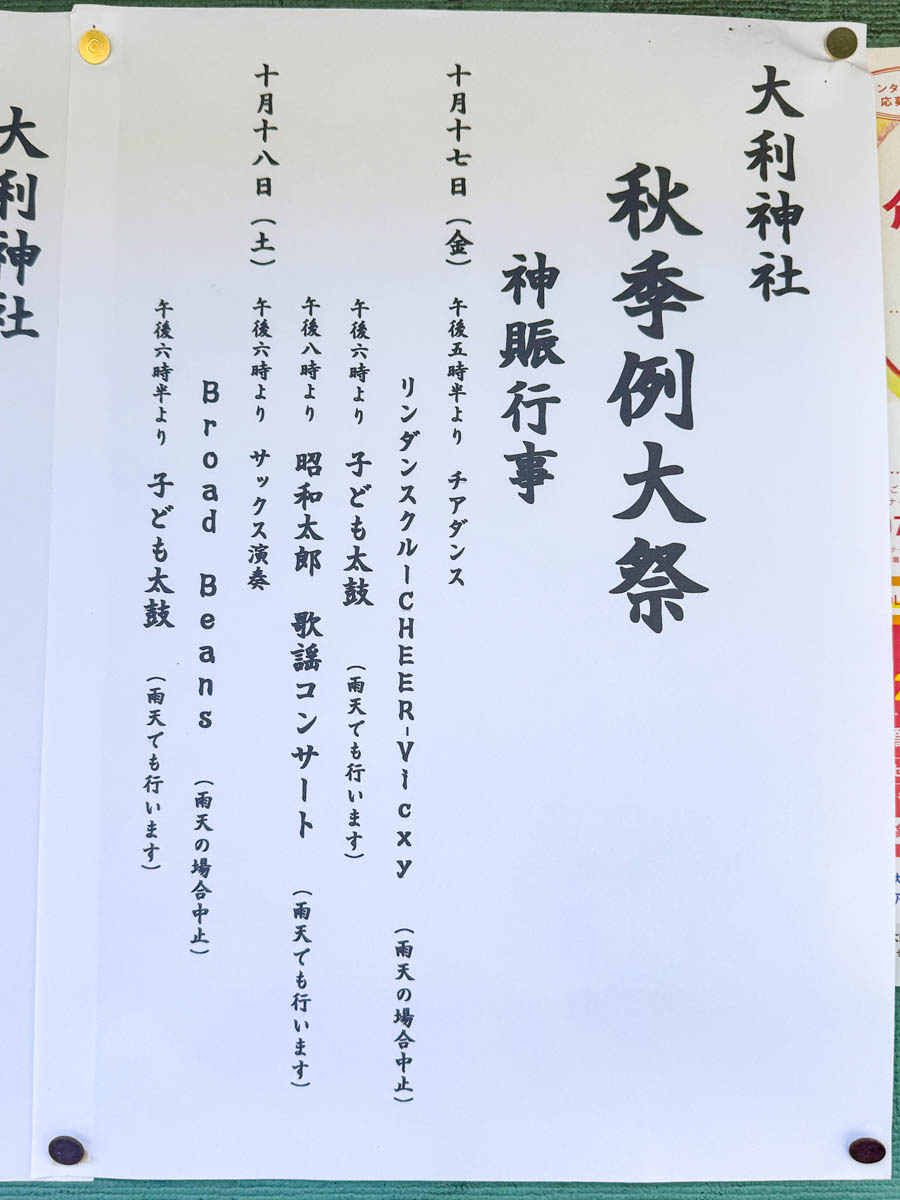 大利神社
秋季例大祭
神賑行事
十月十七日（金） 午後五時半より チアダンス
リンダンスクルーCHEER-Vicxy （雨天の場合中止）
午後六時より 子ども太鼓 （雨天でも行います）
午後八時より 昭和太郎 歌謡コンサート （雨天でも行います）
十月十八日（土） 午後六時より サックス演奏
Broad Beans （雨天の場合中止）
午後六時半より 子ども太鼓 （雨天でも行います）
大利神社